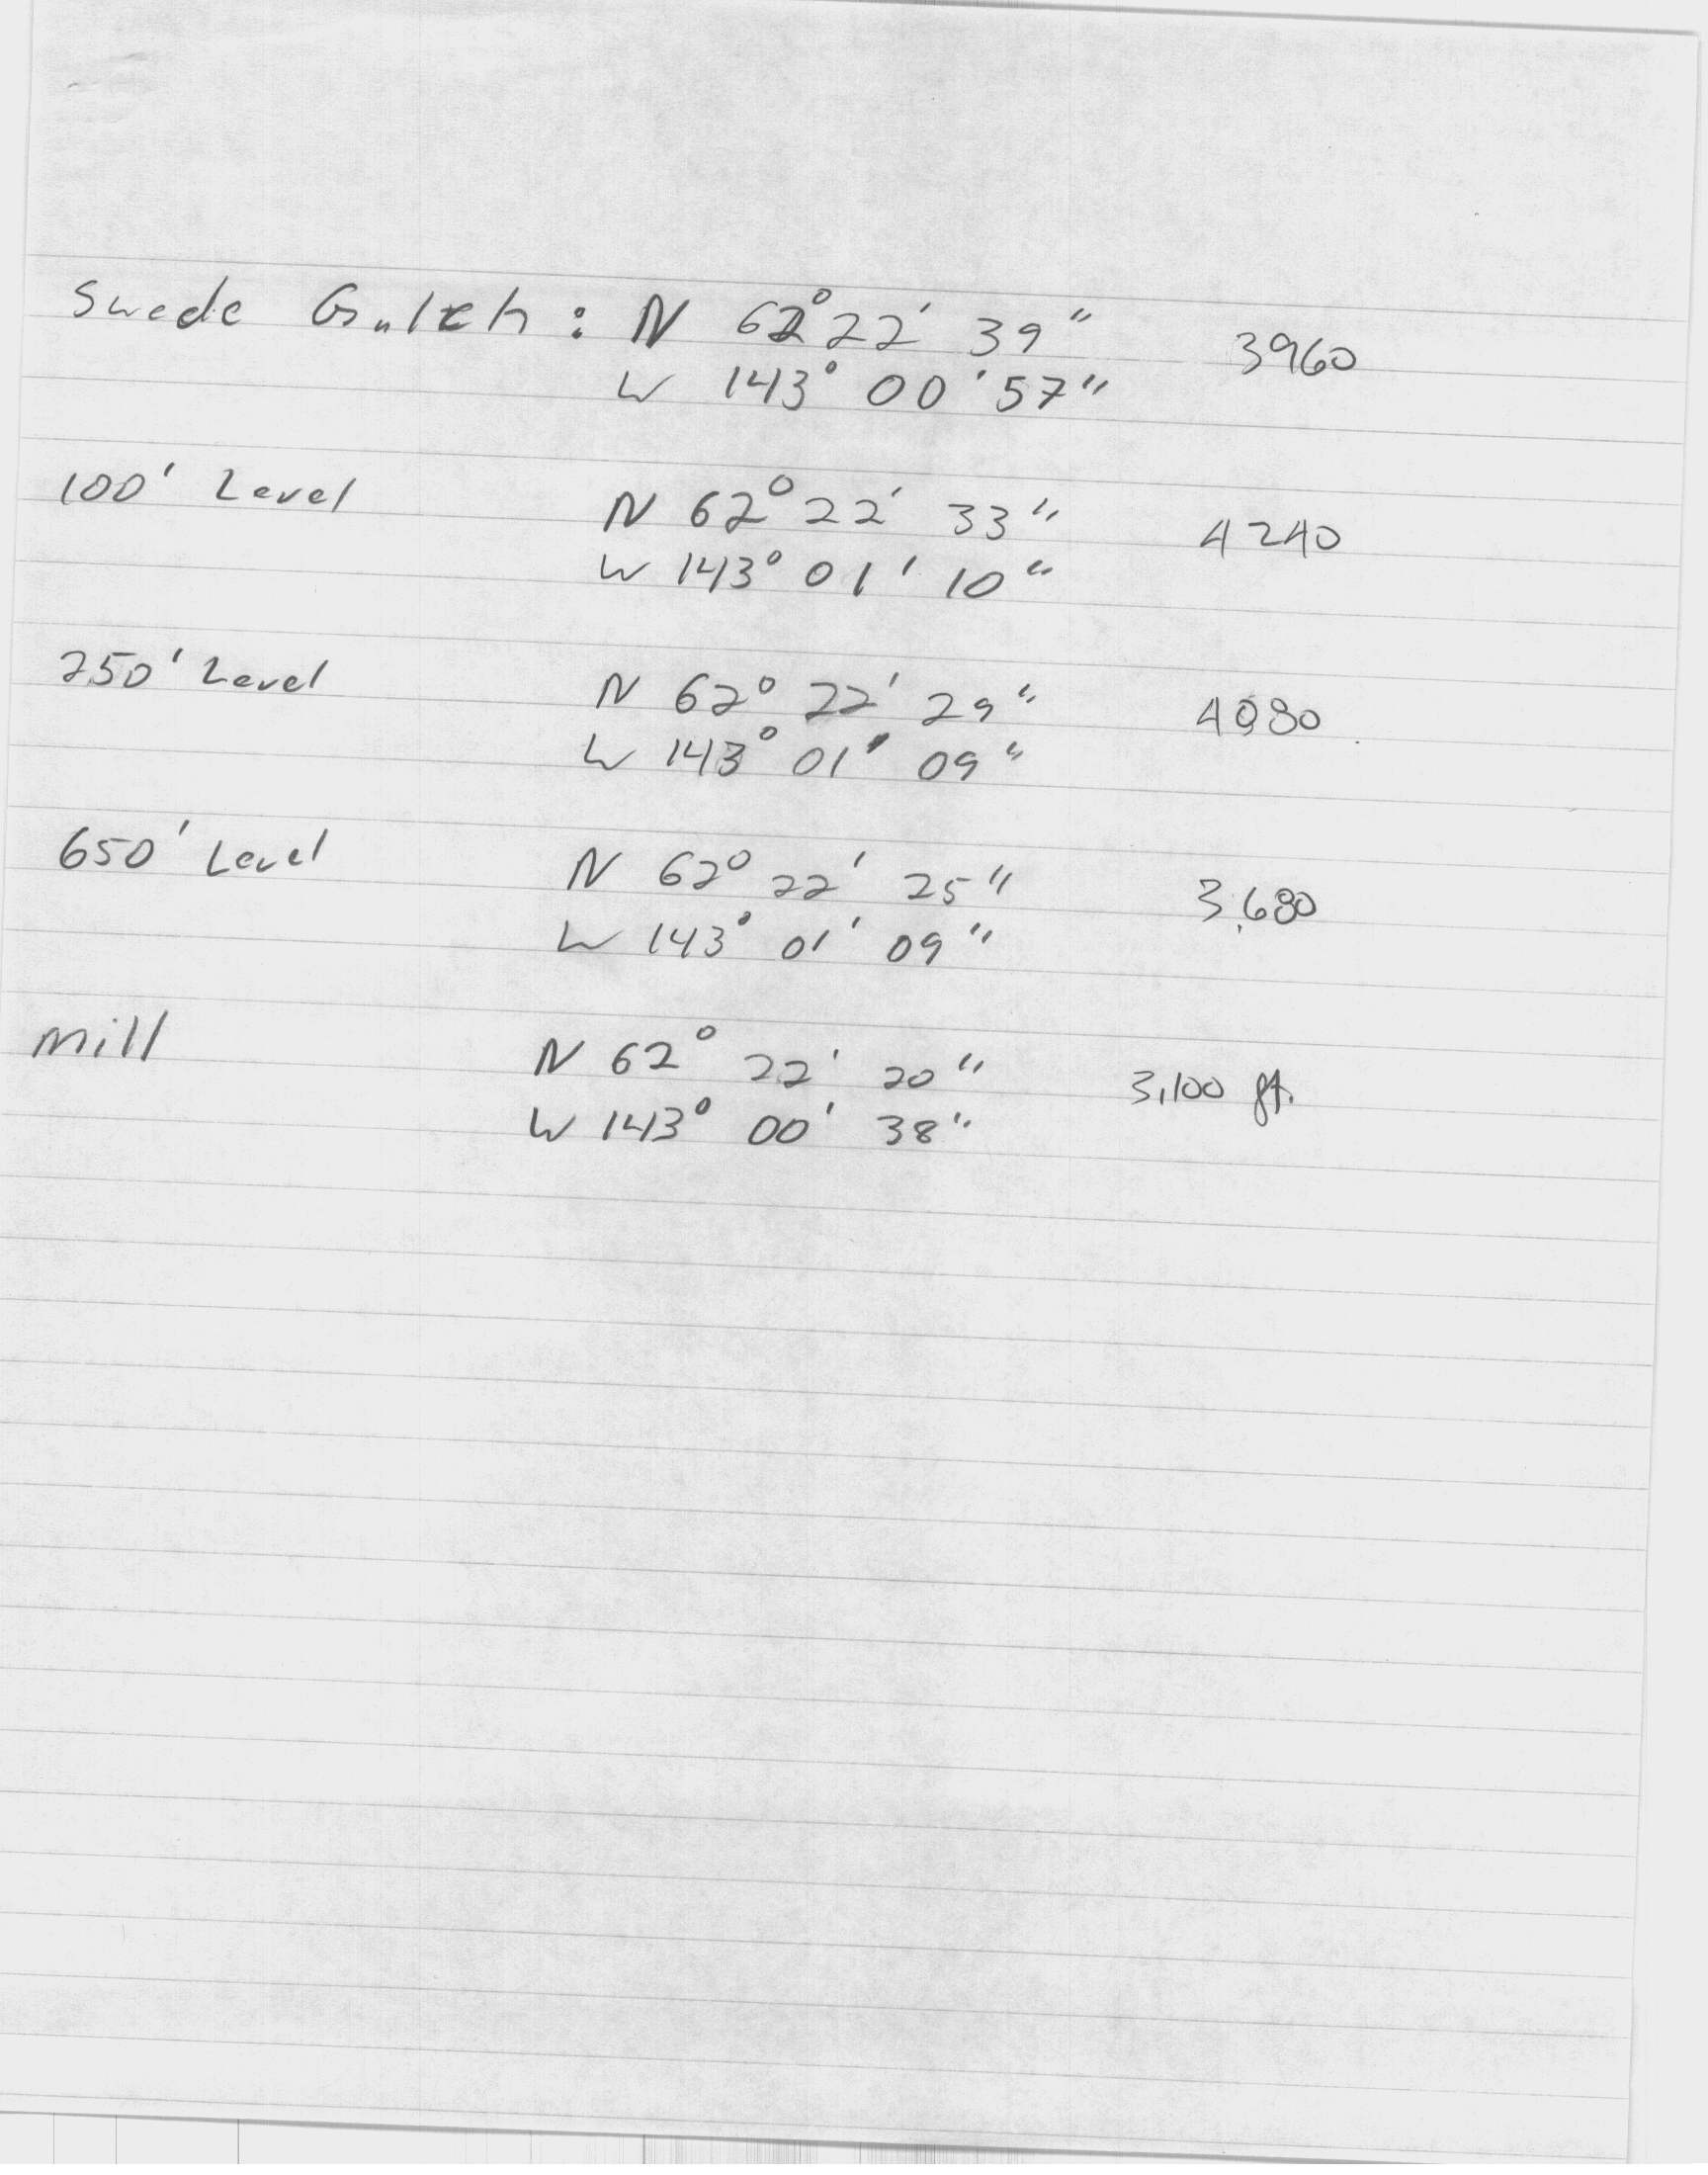 Swede Gulch : N 62° 22' 39" 3960
W 143° 00' 57"
100' Level N 62° 22' 33" 4240
W 143° 01' 10"
250' Level N 62° 22' 29" 4080
W 143° 01' 09"
650' Level N 62° 22' 25" 3,680
W 143° 01' 09"
Mill N 62° 22' 20" 3,100 ft.
W 143° 00' 38"